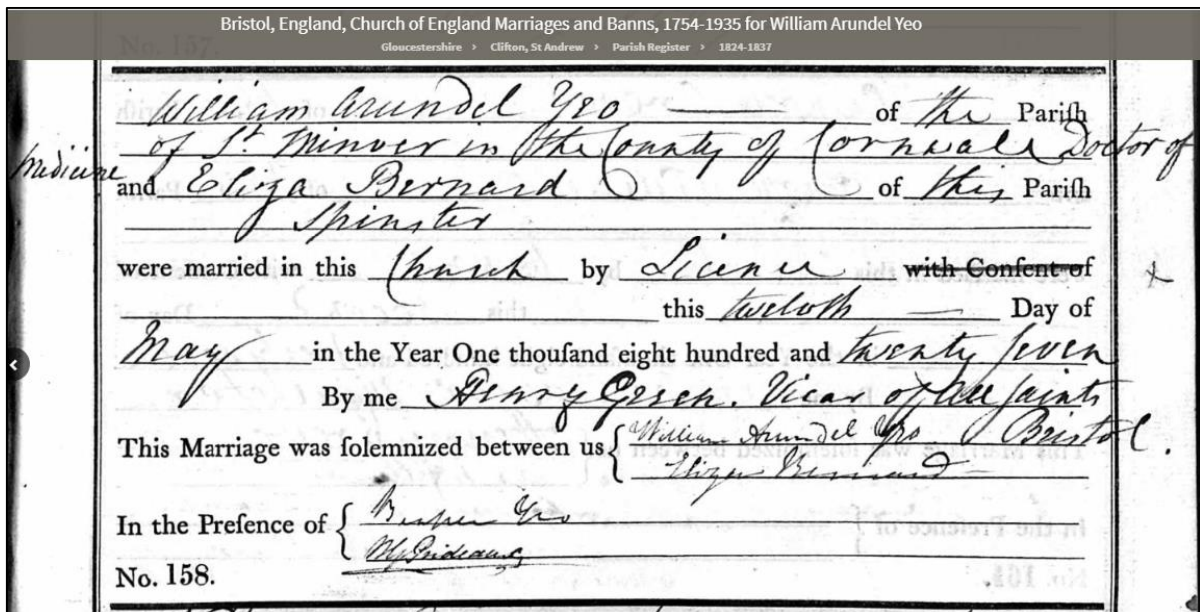 Bristol, England, Church of England Marriages and Banns, 1754-1935 for William Arundel Yeo
Gloucestershire > Clifton, St Andrew > Parish Register > 1824-1837
No. 157.
William Arundel Yeo of the Pariſh
of St. Minver in the County of Cornwall Doctor of
Medicine
and Eliza Bernard of this Pariſh
Spinster
were married in this Church by Licence with Conſent of
this twelvth Day of
May in the Year One thouſand eight hundred and twenty ſeven
By me Henry Green. Vicar of All Saints
Bristol.
This Marriage was ſolemnized between us { William Arundel Yeo
Eliza Bernard
In the Preſence of { Yeo
Prideaux
No. 158.